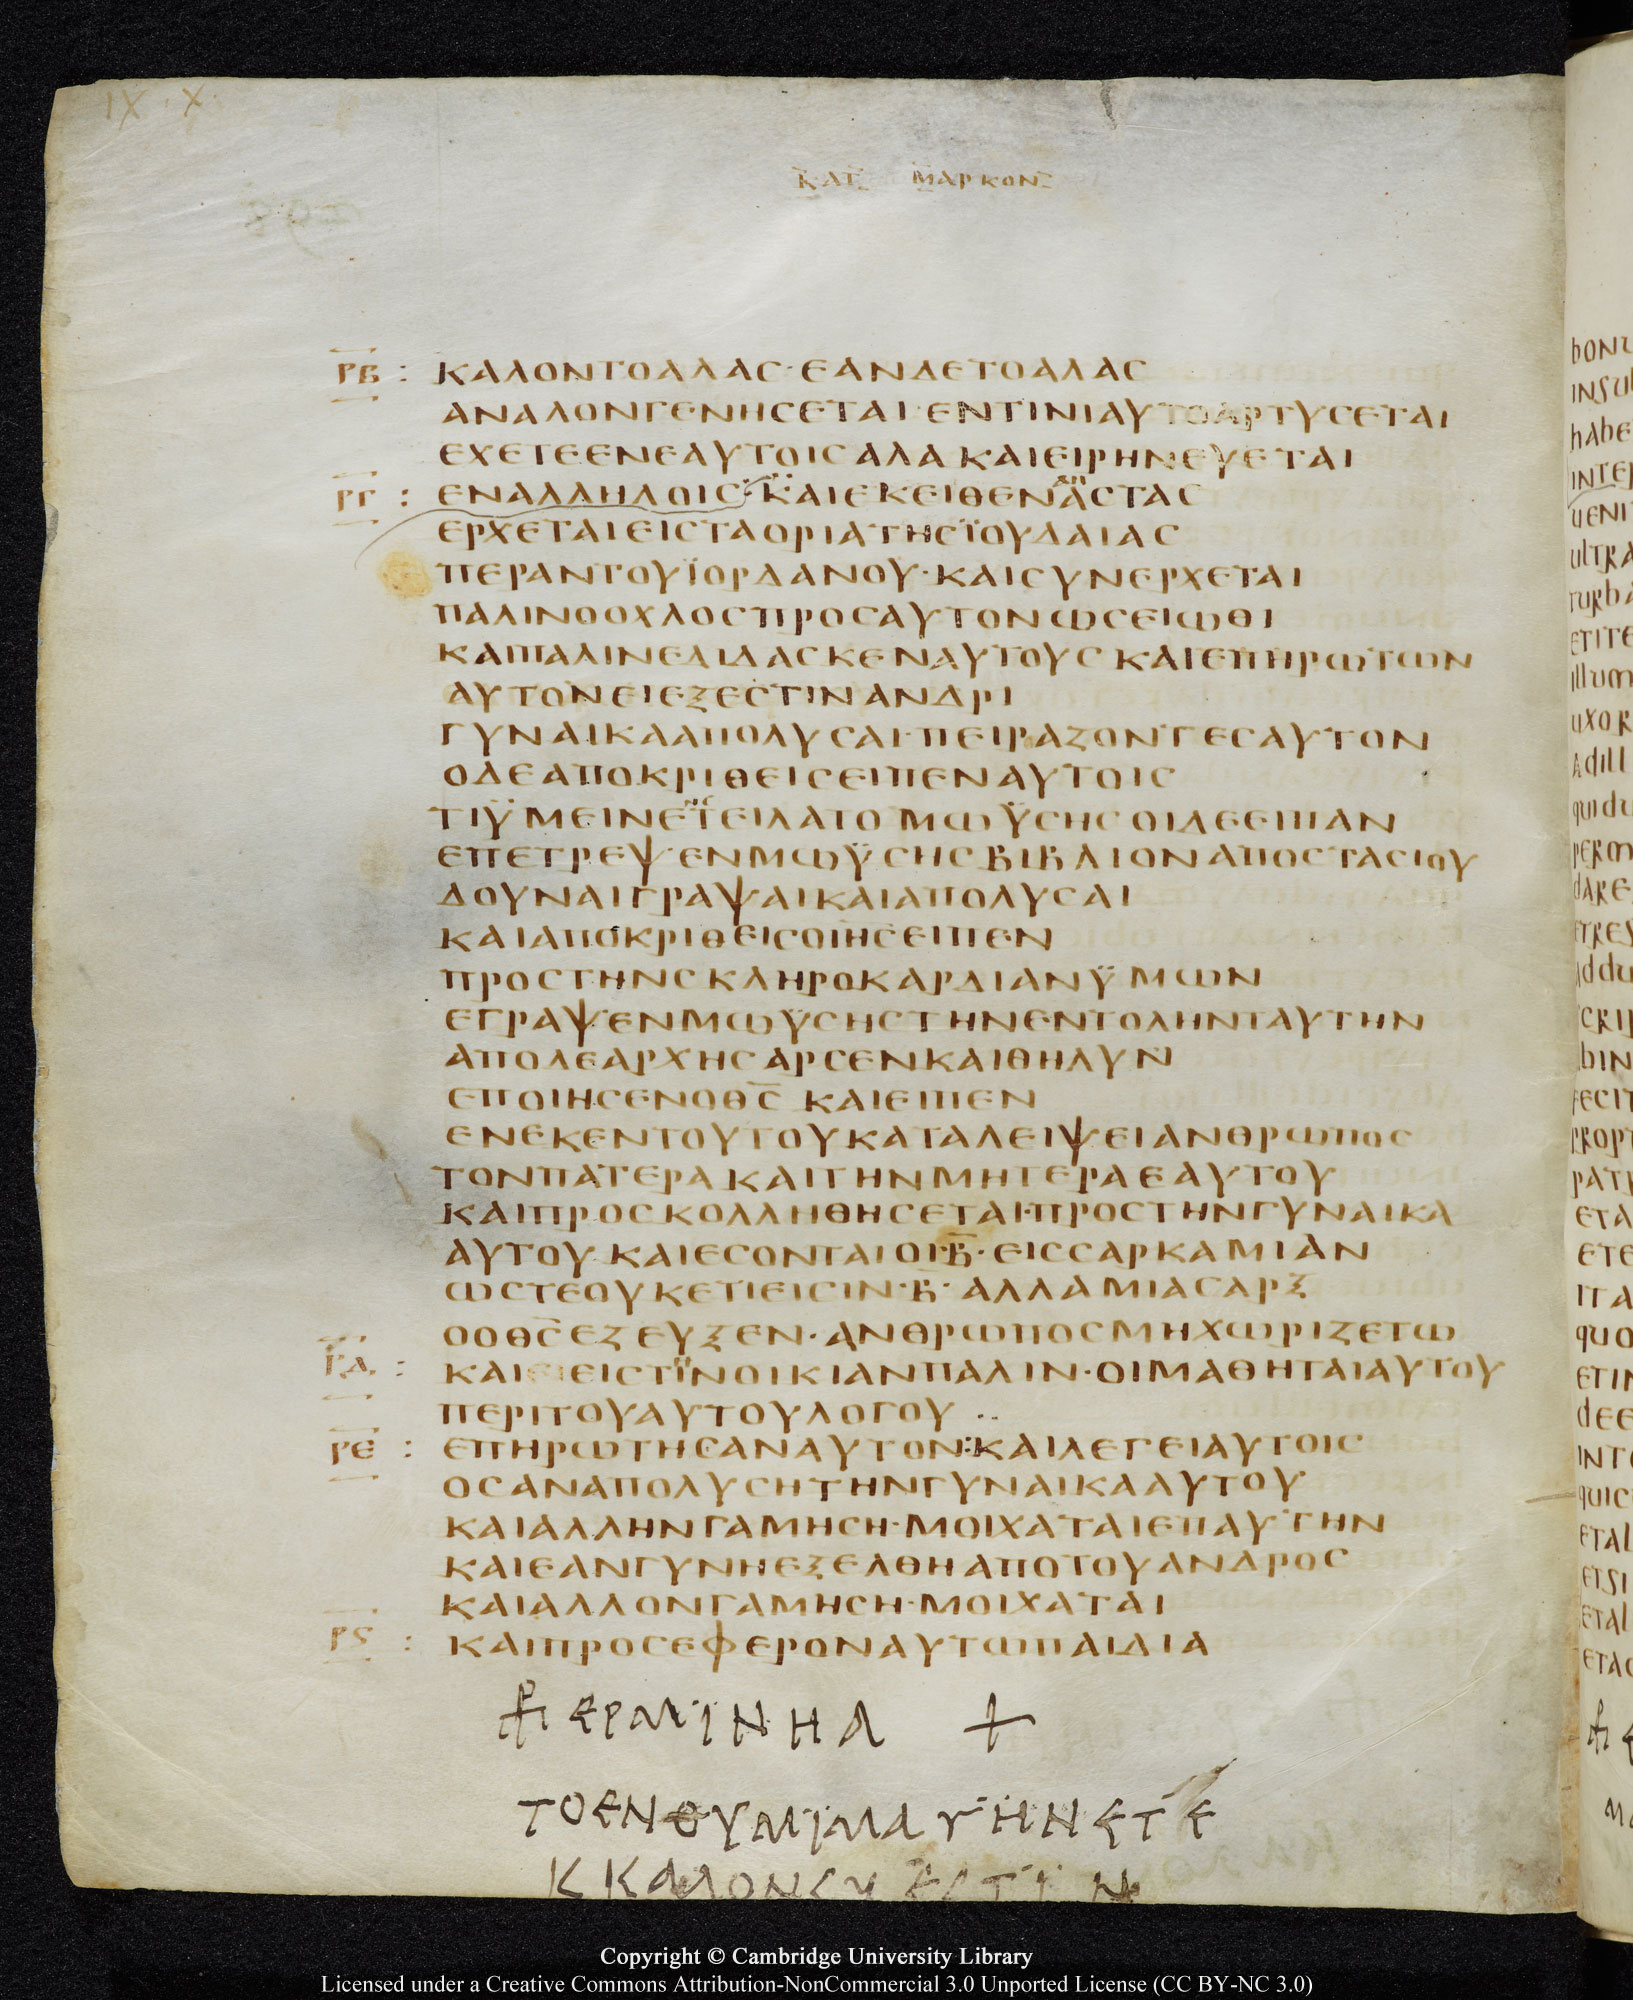 IX · X
ΚΑΤ ΜΑΡΚΟΝ
ΡΒ : ΚΑΛΟΝΤΟΑΛΑΣ· ΕΑΝΔΕΤΟΑΛΑΣ
ΑΝΑΛΟΝΓΕΝΗΣΕΤΑΙ· ΕΝΤΙΝΙΑΥΤΟΑΡΤΥΣΕΤΑΙ
ΕΧΕΤΕΕΝΕΑΥΤΟΙΣΑΛΑ ΚΑΙΕΙΡΗΝΕΥΕΤΑΙ
ΡΓ : ΕΝΑΛΛΗΛΟΙΣ: ΚΑΙΕΚΕΙΘΕΝΑΝΑΣΤΑΣ
ΕΡΧΕΤΑΙΕΙΣΤΑΟΡΙΑΤΗΣΪΟΥΔΑΙΑΣ
ΠΕΡΑΝΤΟΥΪΟΡΔΑΝΟΥ· ΚΑΙΣΥΝΕΡΧΕΤΑΙ
ΠΑΛΙΝΟΟΧΛΟΣΠΡΟΣΑΥΤΟΝΩΣΕΙΩΘΙ
ΚΑΠΠΑΛΙΝΕΔΙΔΑΣΚΕΝΑΥΤΟΥΣ ΚΑΙΕΠΗΡΩΤΩΝ
ΑΥΤΟΝΕΙΕΞΕΣΤΙΝΑΝΔΡΙ
ΓΥΝΑΙΚΑΑΠΟΛΥΣΑΙ· ΠΕΙΡΑΖΟΝΤΕΣΑΥΤΟΝ
ΟΔΕΑΠΟΚΡΙΘΕΙΣΕΙΠΕΝΑΥΤΟΙΣ
ΤΙΫΜΕΙΝΕΝΤΕΙΛΑΤΟ ΜΩΫΣΗΣ ΟΙΔΕΕΙΠΑΝ
ΕΠΕΤΡΕΨΕΝΜΩΫΣΗΣ ΒΙΒΛΙΟΝΑΠΟΣΤΑΣΙΟΥ
ΔΟΥΝΑΙΓΡΑΨΑΙΚΑΙΑΠΟΛΥΣΑΙ
ΚΑΙΑΠΟΚΡΙΘΕΙΣΟΙΗΣΕΙΠΕΝ
ΠΡΟΣΤΗΝΣΚΛΗΡΟΚΑΡΔΙΑΝΫΜΩΝ
ΕΓΡΑΨΕΝΜΩΫΣΗΣΤΗΝΕΝΤΟΛΗΝΤΑΥΤΗΝ
ΑΠΟΔΕΑΡΧΗΣ ΑΡΣΕΝΚΑΙΘΗΛΥΝ
ΕΠΟΙΗΣΕΝΟΘΣ ΚΑΙΕΙΠΕΝ
ΕΝΕΚΕΝΤΟΥΤΟΥΚΑΤΑΛΕΙΨΕΙΑΝΘΡΩΠΟΣ
ΤΟΝΠΑΤΕΡΑ ΚΑΙΤΗΝΜΗΤΕΡΑΕΑΥΤΟΥ
ΚΑΙΠΡΟΣΚΟΛΛΗΘΗΣΕΤΑΙ·ΠΡΟΣΤΗΝΓΥΝΑΙΚΑ
ΑΥΤΟΥ ΚΑΙΕΣΟΝΤΑΙΟΙ·Β· ΕΙΣΣΑΡΚΑΜΙΑΝ
ΩΣΤΕΟΥΚΕΤΙΕΙΣΙΝ·Β· ΑΛΛΑΜΙΑΣΑΡΞ
ΟΟΘΣΕΖΕΥΞΕΝ· ΑΝΘΡΩΠΟΣΜΗΧΩΡΙΖΕΤΩ
ΡΔ : ΚΑΙΕΙΣΤΗΝΟΙΚΙΑΝΠΑΛΙΝ· ΟΙΜΑΘΗΤΑΙΑΥΤΟΥ
ΠΕΡΙΤΟΥΑΥΤΟΥΛΟΓΟΥ
ΡΕ : ΕΠΗΡΩΤΗΣΑΝΑΥΤΟΝ:ΚΑΙΛΕΓΕΙΑΥΤΟΙΣ
ΟΣΑΝΑΠΟΛΥΣΗΤΗΝΓΥΝΑΙΚΑΑΥΤΟΥ
ΚΑΙΑΛΛΗΝΓΑΜΗΣΗ· ΜΟΙΧΑΤΑΙΕΠΑΥΤΗΝ
ΚΑΙΕΑΝΓΥΝΗΕΞΕΛΘΗΑΠΟΤΟΥΑΝΔΡΟΣ
ΚΑΙΑΛΛΟΝΓΑΜΗΣΗ· ΜΟΙΧΑΤΑΙ
ΡϚ : ΚΑΙΠΡΟΣΕΦΕΡΟΝΑΥΤΩΠΑΙΔΙΑ
ΕΡΜΙΝΗΑ +
ΤΟΕΝΘΥΜΙΜΑΥΗΝΕΤΕ
Copyright © Cambridge University Library
Licensed under a Creative Commons Attribution-NonCommercial 3.0 Unported License (CC BY-NC 3.0)